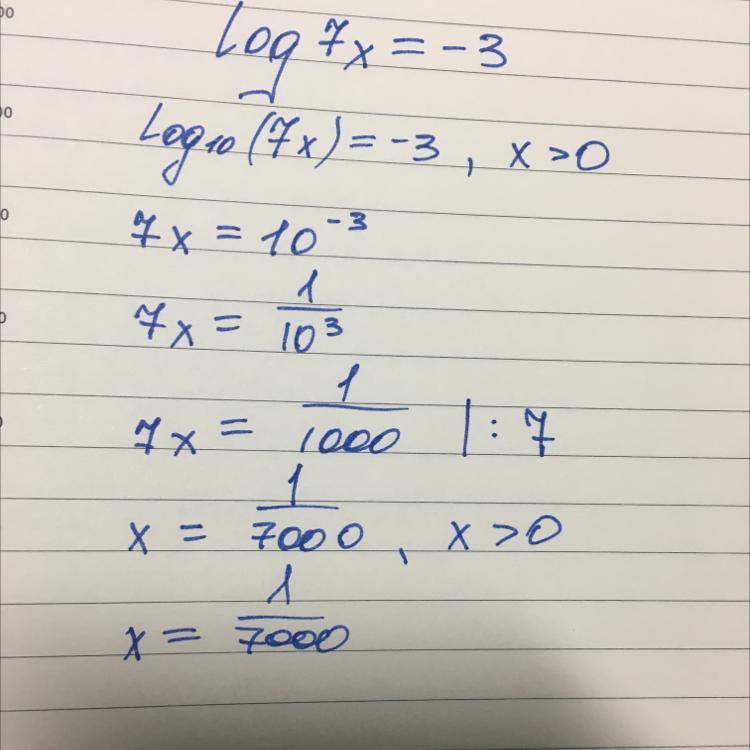 log 7x = -3
log₁₀(7x) = -3, x > 0
7x = 10⁻³
7x = 1/10³
7x = 1/1000 | : 7
x = 1/7000, x > 0
x = 1/7000